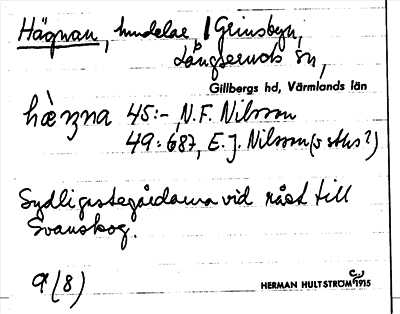 Hägnan, hundelar i Grinsbyn,
Långseruds sn,
Gillbergs hd, Värmlands län
hæ̀ŋna 45:-, N.F. Nilsson
49:687, E.J. Nilsson (s sths?)
Sydligaste gårdarna vid råst till
Svanskog.
(8)
HERMAN HULTSTRÖM 1915